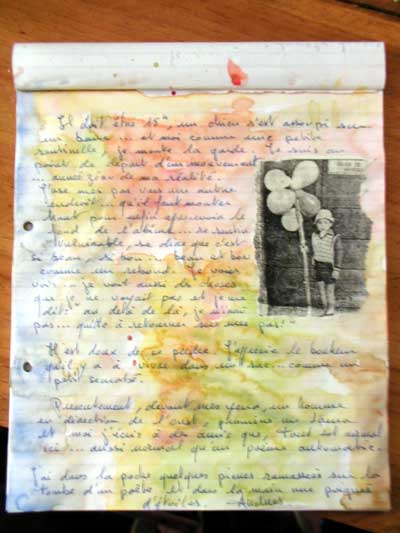 Il doit être 15h, un chien s'est assoupi sur
un banc... et moi comme une petite
sentinelle je monte la garde. Je suis au
point de départ d'un mouvement
... année zéro de ma réalité.
J'ose mes pas vers un autre
endroit... qu'il faut monter
haut pour enfin apercevoir le
fond de l'abîme... se sentir
vulnérable, se dire que c'est
si beau, si bon... beau et bon
comme un rebond. Je
vois... je vois aussi des choses
que je ne voyait pas et je me
dit: au delà de là, je n'irai
pas... quitte à retourner sur mes pas!"
Il est doux de se perdre. J'apprécie le bonheur
qu'il y a à vivre dans un sac... comme un
petit scarabé.
Présentement, devant mes yeux, un homme
en direction de l'est, un
et moi j'écris à des amis que, tout est normal
ici... aussi normal qu'un poème automatiste.
J'ai dans la poche quelques pierres ramassées sur la
tombe d'un poète et dans la main une poignée
d'étoiles.